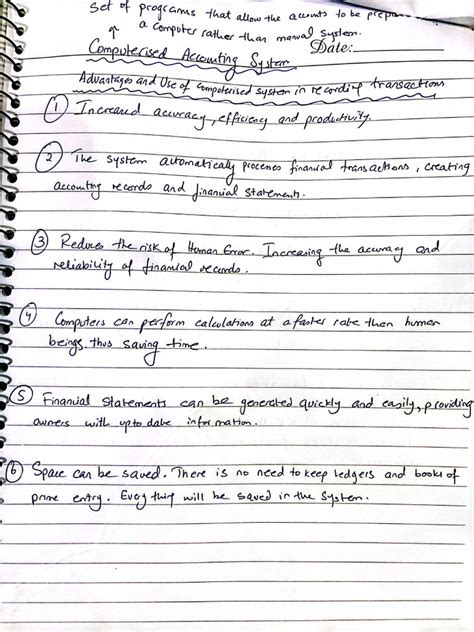 Set of programs that allow the accounts to be prepa
a computer rather than manual system.
Date:
Computerised Accounting System
Advantages and Use of computerised system in recording transactions
① Increased accuracy, efficiency and productivity.
② The system automatically processes financial transactions, creating
accounting records and financial statements.
③ Reduces the risk of Human Error. Increasing the accuracy and
reliability of financial records.
④ Computers can perform calculations at a faster rate than human
beings. thus saving time.
⑤ Financial Statements can be generated quickly and easily, providing
owners with up to date information.
⑥ Space can be saved. There is no need to keep ledgers and books of
prime entry. Everything will be saved in the system.